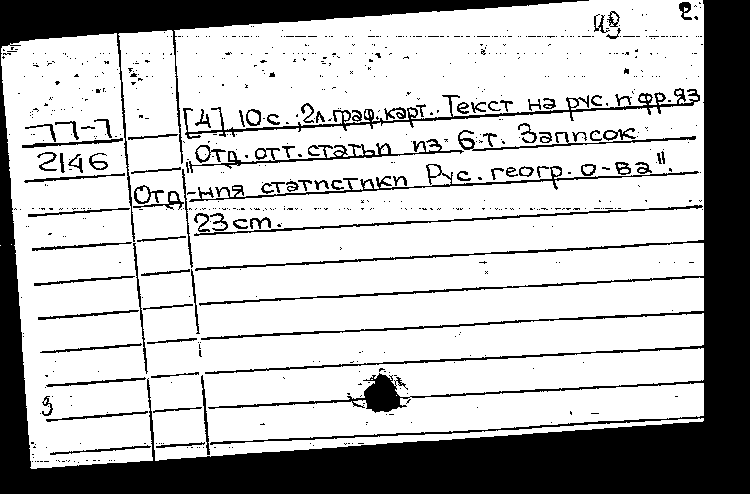 2.
77-7 [4], 10 с.; 2 л. граф., карт.. Текст на рус. и фр. яз
2146 "Отд. отт. статьи из 6 т. Записок
Отд-ния статистики Рус. геогр. о-ва".
23 cm.